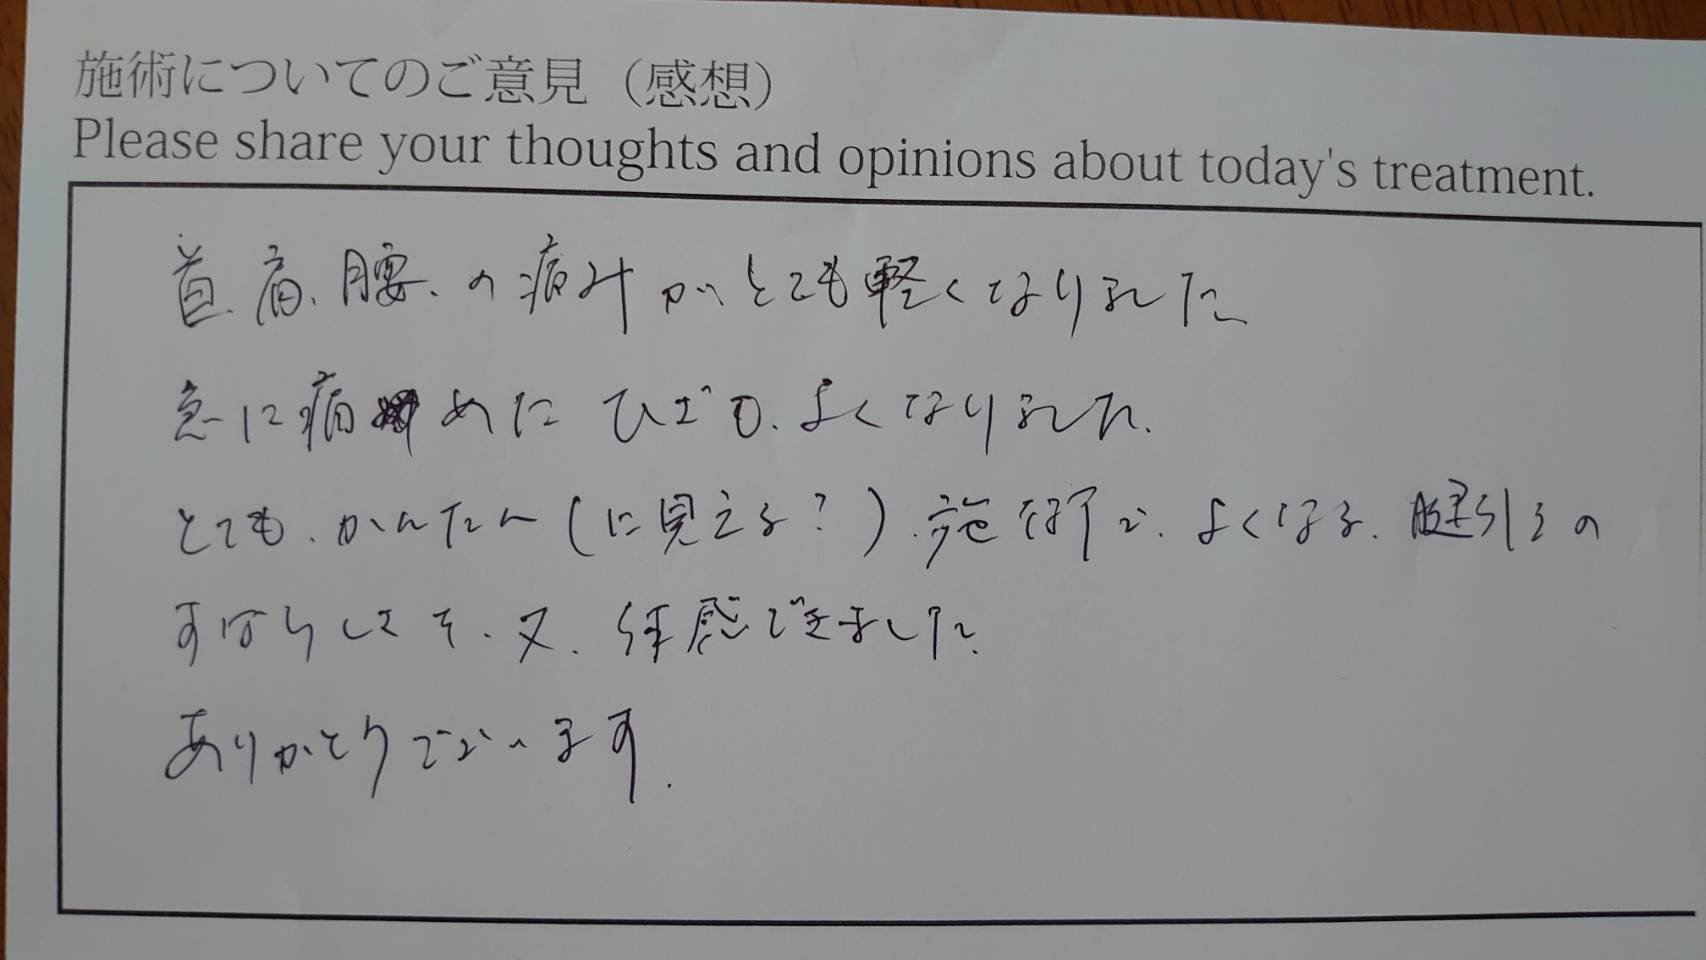 施術についてのご意見（感想）
Please share your thoughts and opinions about today's treatment.
首、肩、腰、の痛みがとても軽くなりました
急に痛めた ひざも、よくなりました。
とても、かんたん（に見える？）、施術で、よくなる、腱引きの
すばらしさを、又、体感できました。
ありがとうございます.